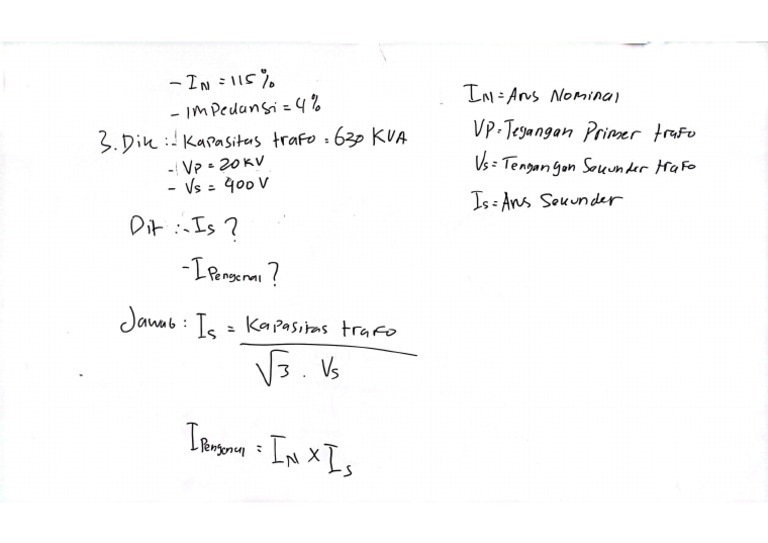 - IN = 115%
- Impedansi = 4%
3. Dik :- Kapasitas trafo = 630 KVA
- VP = 20 KV
- Vs = 400 V
Dit :- Is ?
- I Pengenal ?
Jawab : Is = Kapasitas trafo
√3 . Vs
I Pengenal = IN x Is
IN = Arus Nominal
VP = Tegangan Primer trafo
Vs = Tengangan Sekunder trafo
Is = Arus Sekunder